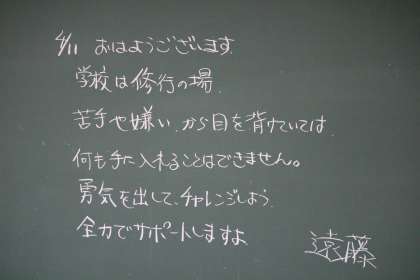 4/11 おはようございます.
学校は修行の場.
苦手や嫌い.から目を背けていては.
何も手に入れることはできません。
勇気を出して、チャレンジしよう.
全力でサポートしますよ
遠藤